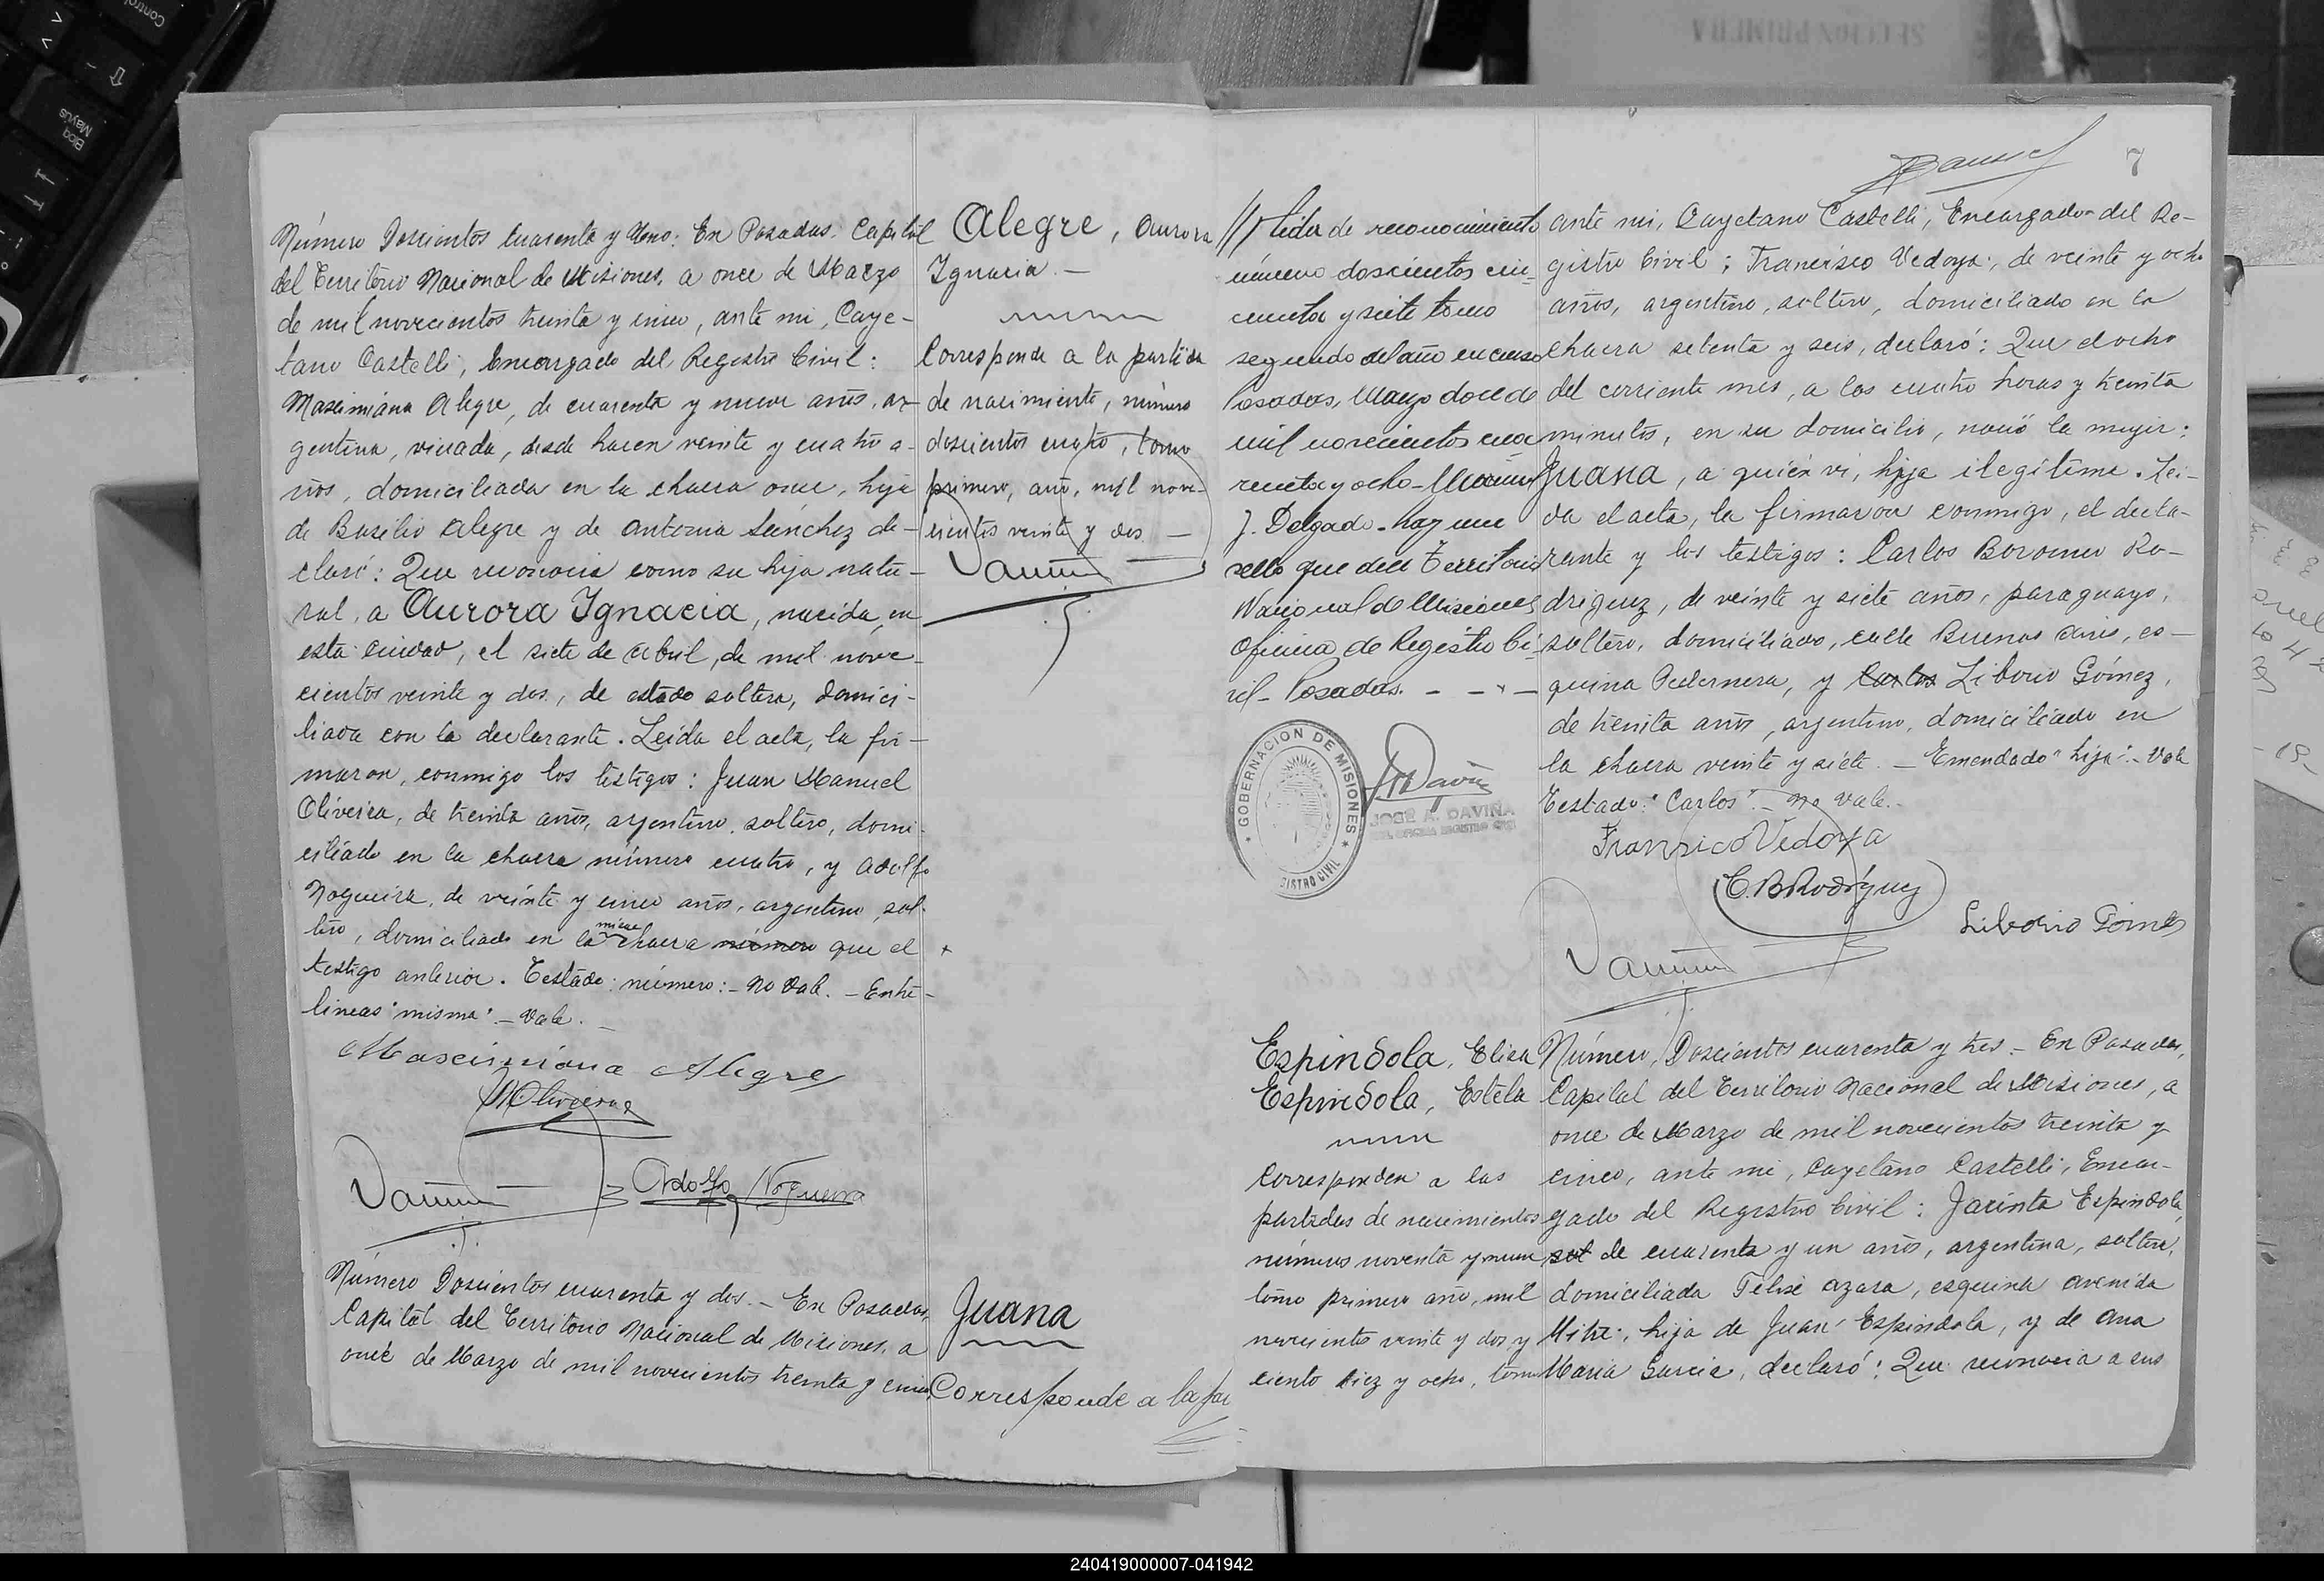 Número Doscientos Cuarenta y Uno: En Posadas, Capital
del Territorio Nacional de Misiones, a once de Marzo
de mil novecientos treinta y cinco, ante mi, Caye-
tano Castelli, Encargado del Registro Civil:
Maximiana Alegre, de cuarenta y nueve años, ar-
gentina, viuda, desde hacen veinte y cuatro a-
ños, domiciliada en la chacra once, hija
de Basilio Alegre y de Antonia Sánchez de-
claró: Que reconocia como su hija natu-
ral, a Aurora Ignacia, nacida en
esta ciudad, el siete de Abril, de mil nove-
cientos veinte y dos, de estado soltera, domici-
liada con la declarante. Leída el acta, la fir-
maron, conmigo los testigos: Juan Manuel
Oliveira, de treinta años, argentino, soltero, domi-
ciliado en la chacra número cuatro, y Adolfo
Nogueira, de veinte y cinco años, argentino, sol-
tero, domiciliado en la misma chacra número que el
testigo anterior. Testado: número:- No vale. - Entre-
lineas "misma" - Vale.
Mascimiana Alegre
JMOliveira
Adolfo Nogueira
Número Doscientos cuarenta y dos. - En Posadas,
Capital del Territorio Nacional de Misiones, a
once de Marzo de mil novecientos treinta y cinco
Alegre, Aurora
Ignacia. -
Corresponde a la partida
de nacimiento, número
doscientos cuatro, tomo
primero, año, mil nove-
cientos veinte y dos -
Juana
Corresponde a la par
7
///tida de reconocimiento
número doscientos cin-
cuenta y siete tomo
segundo del año en curso
Posadas, Mayo doce de
mil novecientos cua
renta y ocho -
J. Delgado - hay un
sello que dice Territorio
Nacional de Misiones
Oficina de Registro Ci-
vil - Posadas. - - -
GOBERNACION DE MISIONES
REGISTRO CIVIL
JOSÉ A. DAVIÑA
ante mi, Cayetano Castelli, Encargado del Re-
gistro Civil; Francisco Vedoya, de veinte y ocho
años, argentino, soltero, domiciliado en la
chacra setenta y seis, declaró: Que el ocho
del corriente mes, a las cuatro horas y treinta
minutos, en su domicilio, nació la mujer:
Juana, a quién vi, hija ilegítima. Leí-
da el acta, la firmaron conmigo, el decla-
rante y los testigos: Carlos Boromeo Ro-
driguez, de veinte y siete años, paraguayo,
soltero, domiciliado, calle Buenos Aires, es-
quina Pedernera, y Carlos Liborio Gómez,
de treinta años, argentino, domiciliado en
la chacra veinte y siete. - Emendado "hija" - Vale
Testado: "Carlos" - No vale. -
Francisco Vedoya
C. B Rodriguez
Liborio Gómez
Espindola, Elisa
Espindola, Estela
Corresponden a las
partidas de nacimientos
números noventa y nueve
tomo primero año, mil
novecientos veinte y dos y
ciento diez y ocho, tomo
Número, Doscientos cuarenta y tres. - En Posadas,
Capital del Territorio Nacional de Misiones, a
once de Marzo de mil novecientos treinta y
cinco, ante mi, Cayetano Castelli, Encar-
gado del Registro Civil: Jacinta Espindola,
sol de cuarenta y un años, argentina, soltera,
domiciliada Félix Azara, esquina avenida
Mitre, hija de Juan Espindola, y de Ana
Maria Garcia, declaró: Que reconocia a sus
240419000007-041942